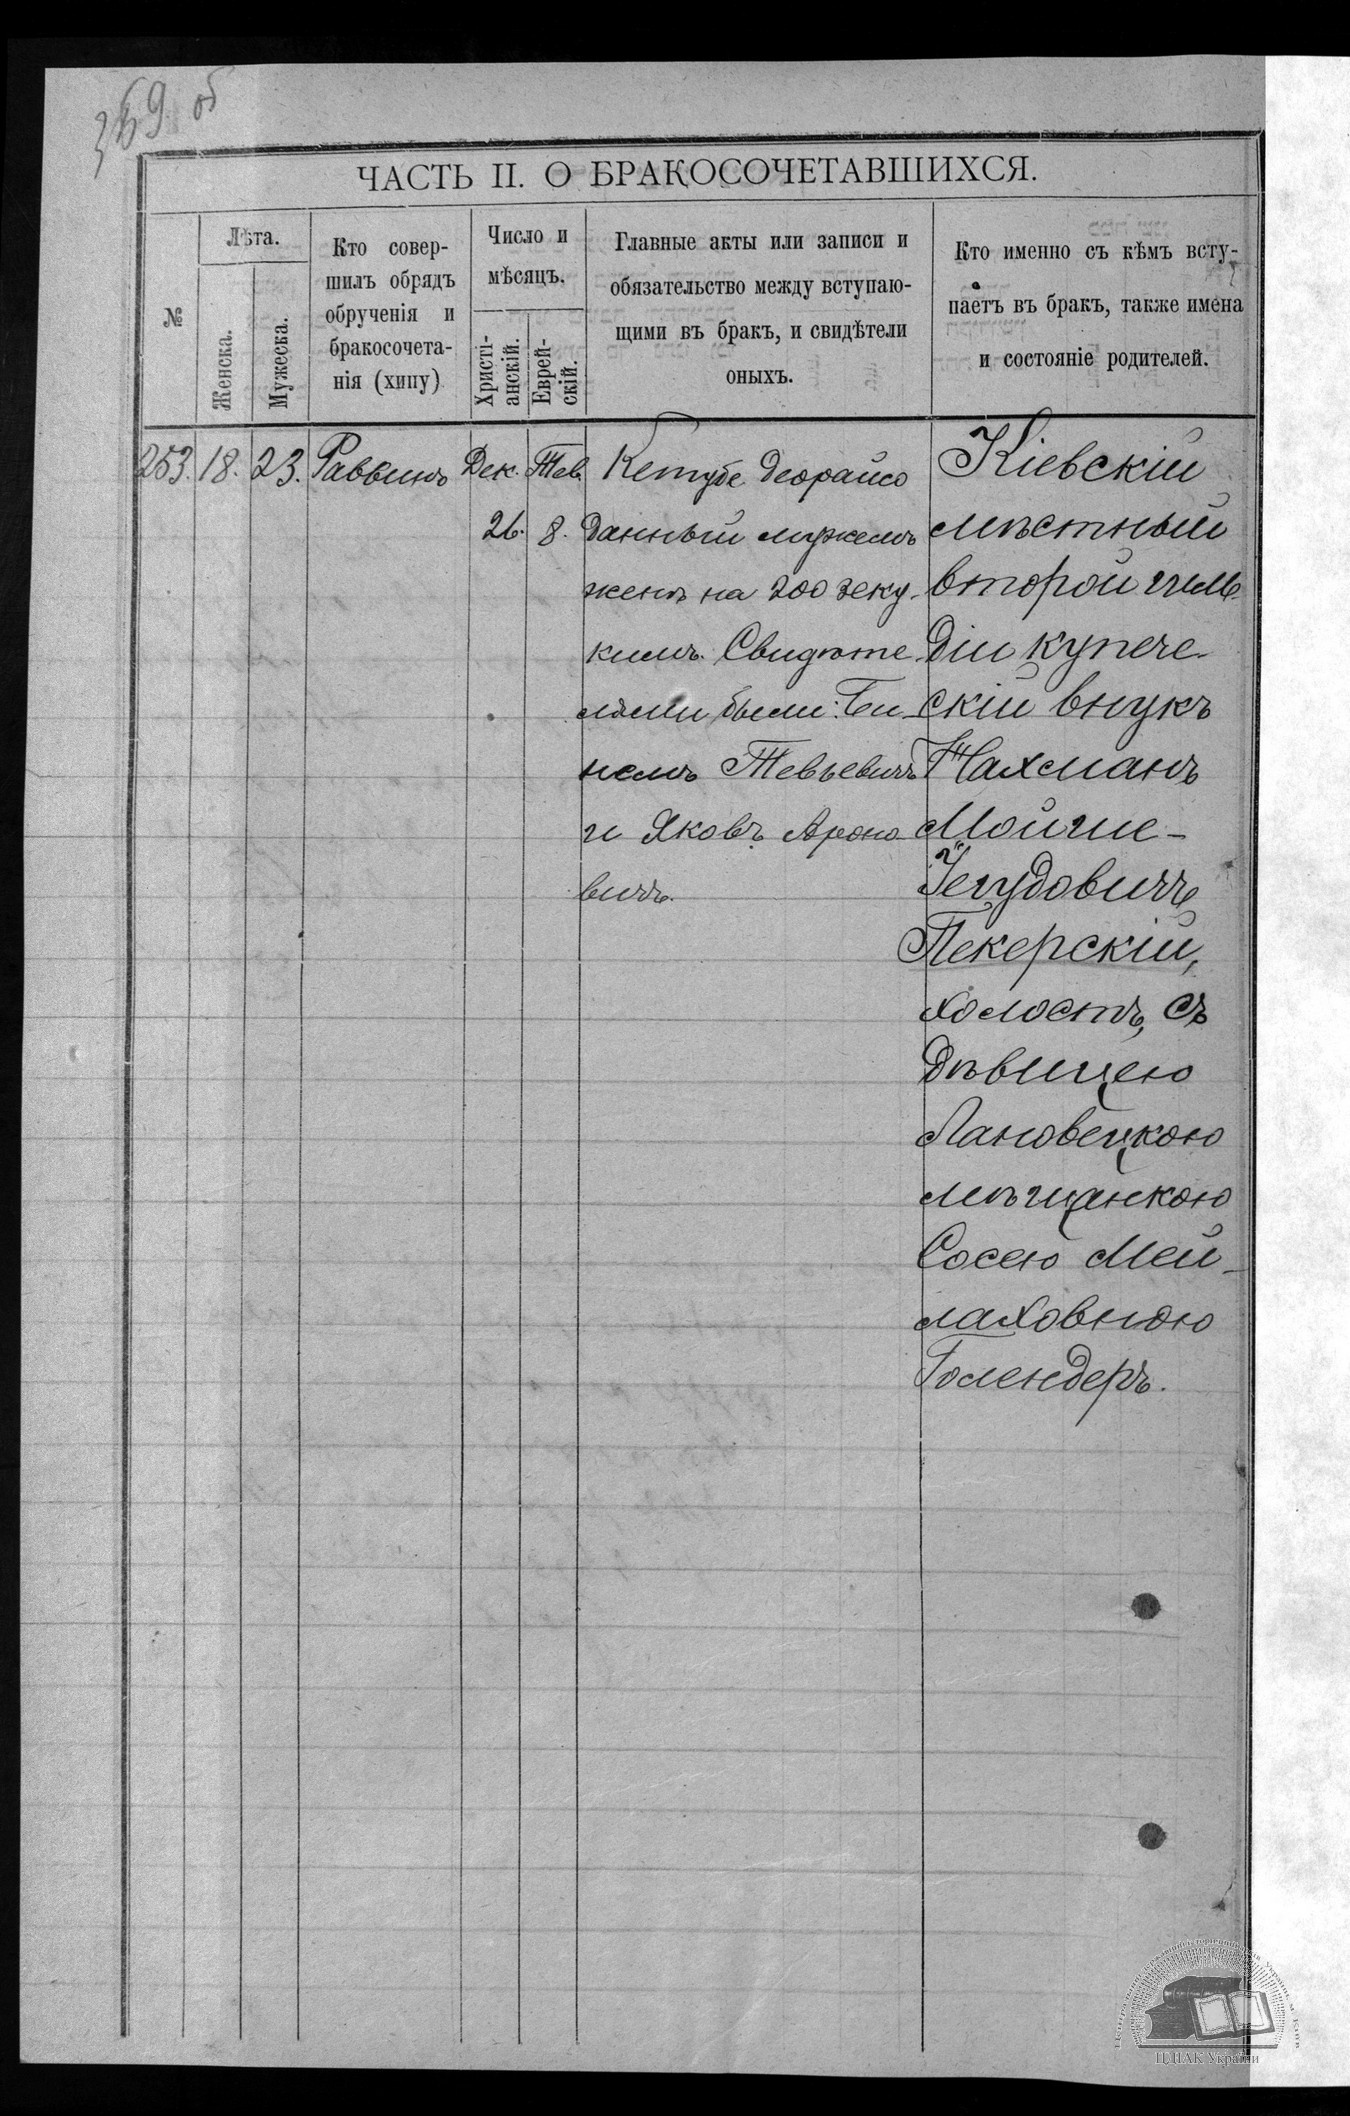 369 об
ЧАСТЬ II. О БРАКОСОЧЕТАВШИХСЯ.
№
Лѣта.
Женска.
Мужеска.
Кто совер-
шилъ обрядъ
обрученія и
бракосочета-
нія (хипу)
Число и
мѣсяцъ.
Христі-
анскій.
Еврей-
скій.
Главные акты или записи и
обязательство между вступаю-
щими въ бракъ, и свидѣтели
оныхъ.
Кто именно съ кѣмъ всту-
паетъ въ бракъ, также имена
и состояніе родителей.
253. 18. 23. Раввинъ Дек. Тев.
26. 8.
Кетубе деорайсо
данный мужемъ
женѣ на 200 зеку-
кимъ. Свидѣте-
лями были: Би-
немъ Тевьевичъ
и Яковъ Ароно-
вичъ.
Кіевскій
мѣстный
второй гиль-
діи купече-
скій внукъ
Нахманъ
Мойше-
Іегудовичъ
Пекерскій,
холостъ, съ
дѣвицею
Лановецкою
мѣщанкою
Сосею Мей-
лаховною
Голендеръ.
ЦДІАК України